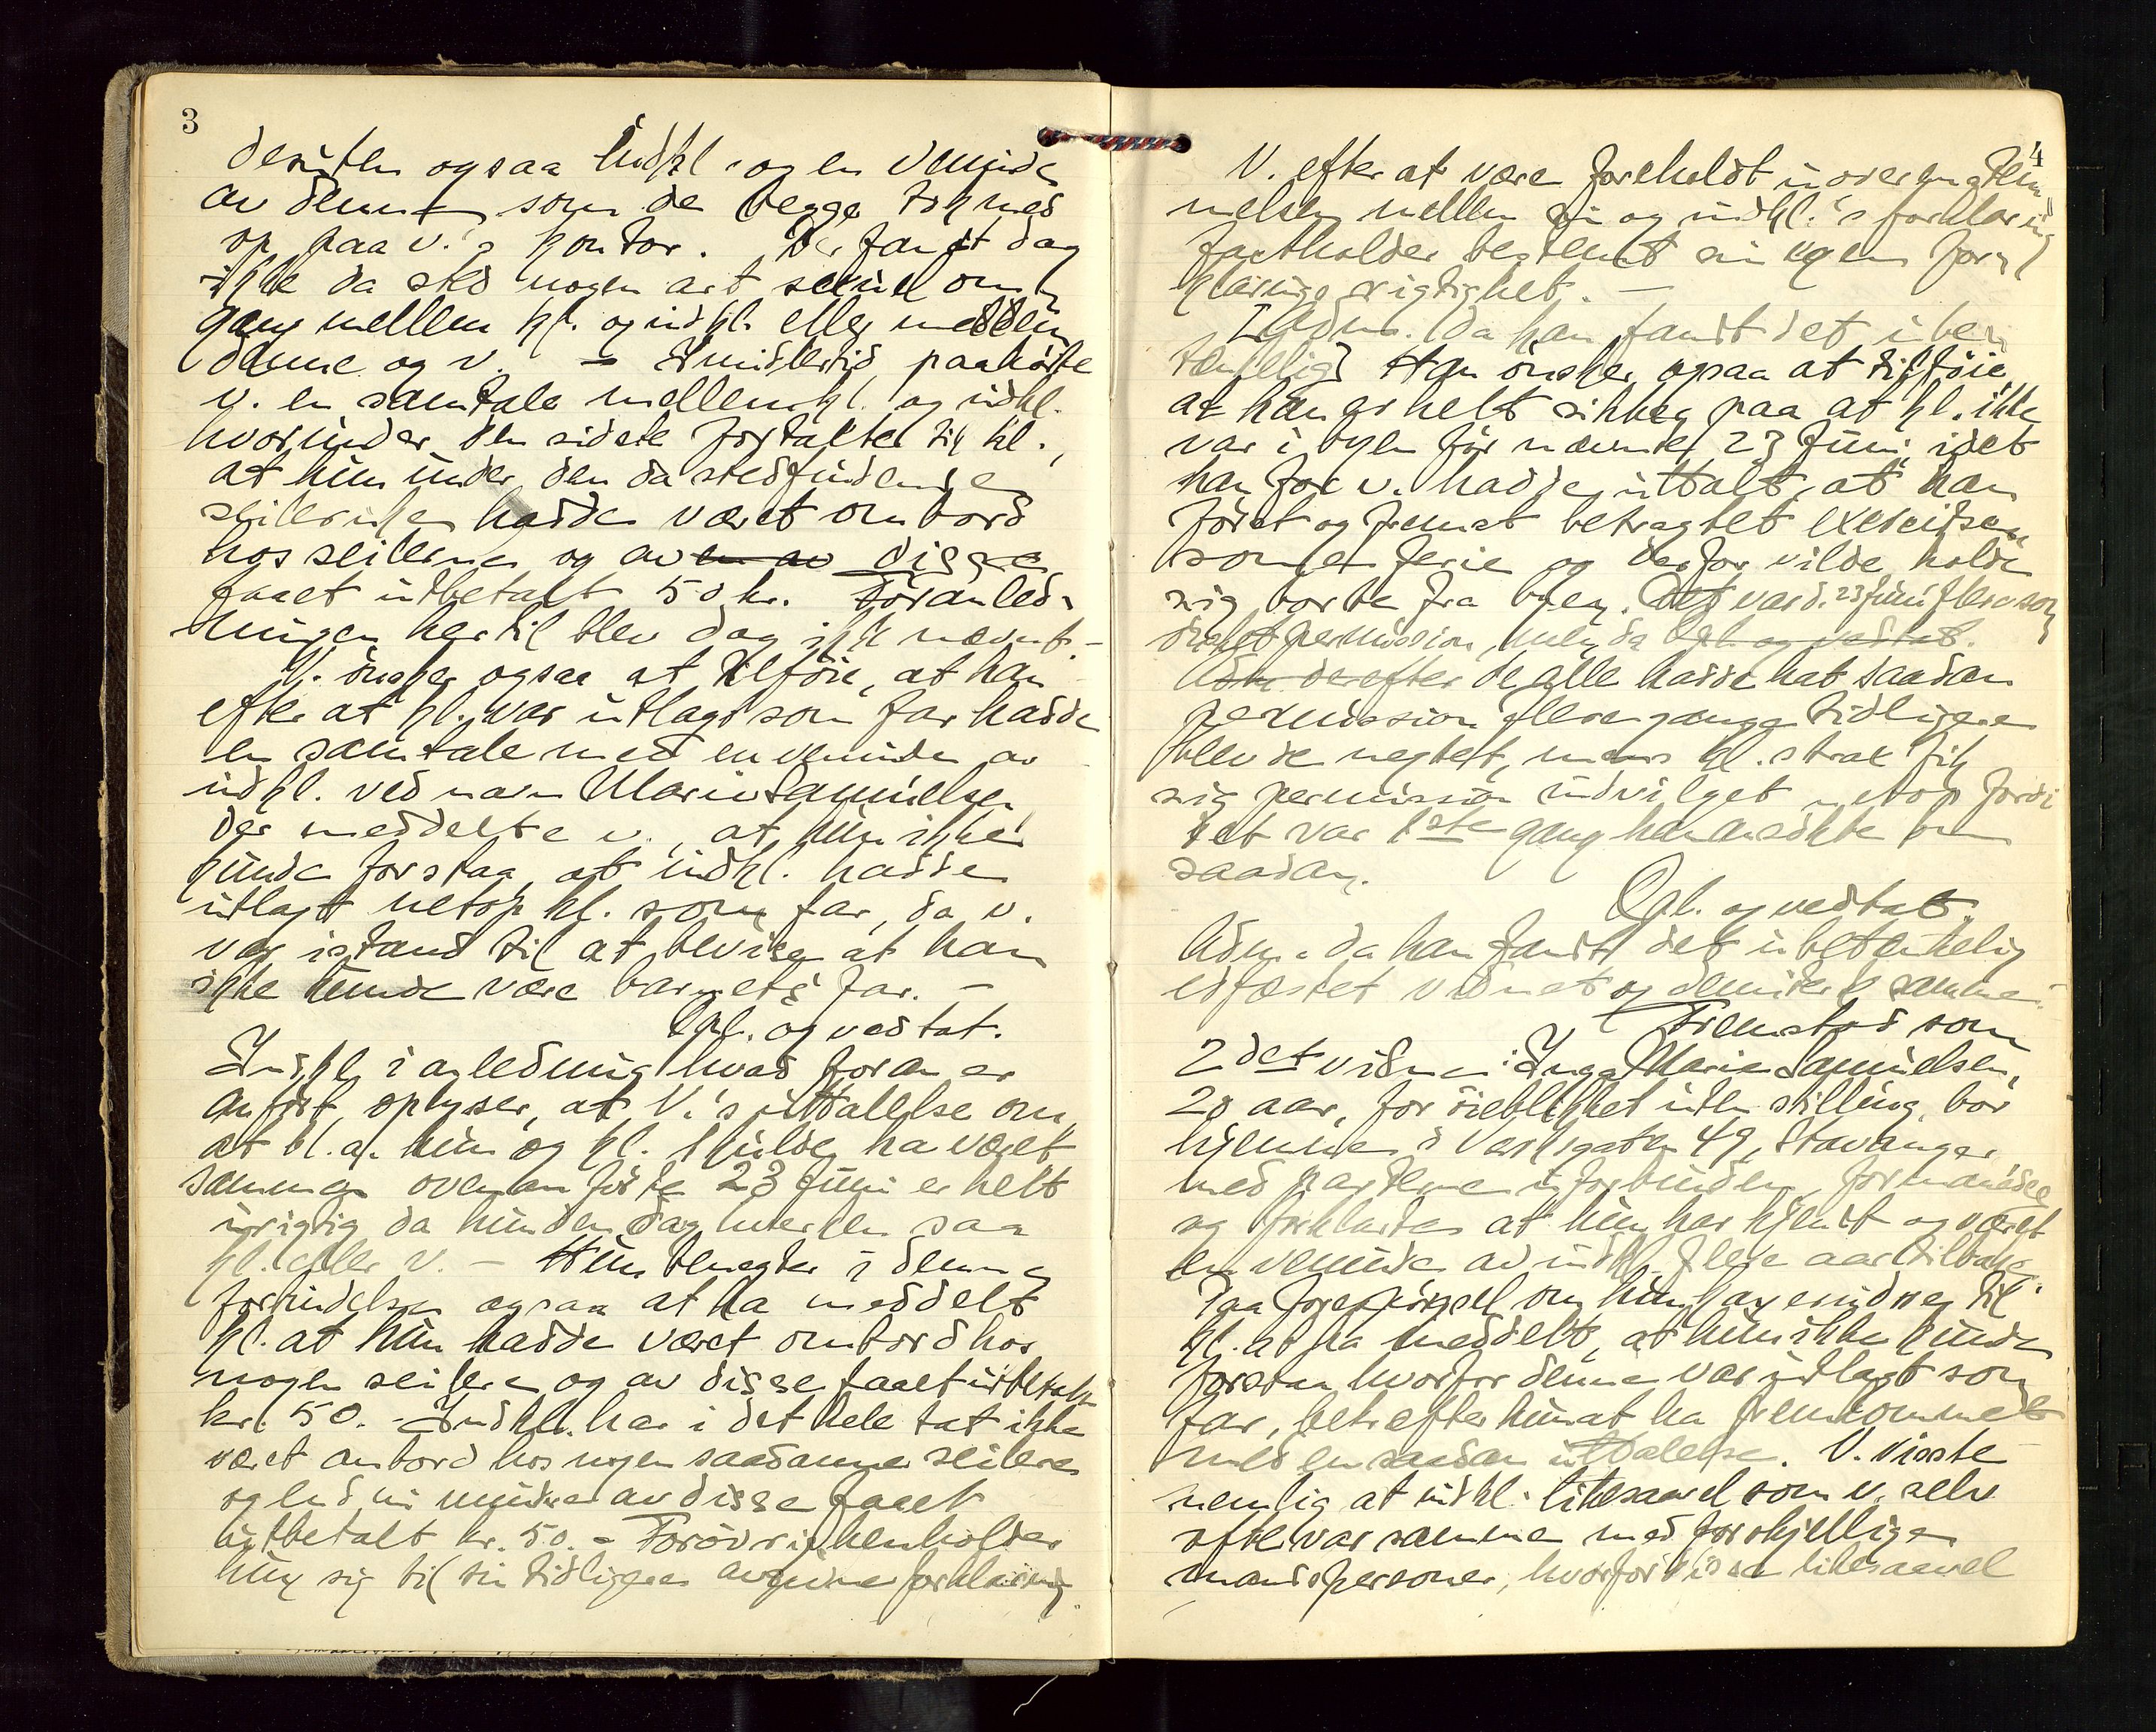 3
desuten ogsaa Indkl. og en veninde
av denne som de begge tok med
op paa v.'s kontor. Der fandt dog
ikke da sted nogen art sexuel om-
gang mellem kl. og indkl. eller
denne og v. — Imidlertid paahørte
v. en samtale mellem kl. og indkl.
hvorunder den sidste fortalte til kl.,
at hun under den da stedfindende
seileruke hadde været ombord
hos seilerne og av en av disse
faaet utbetalt 50 kr. Foranled-
ningen hertil blev dog ikke nævnt. —
V. ønsker ogsaa at tilføie, at han
efter at kl. var utlagt som far hadde
en samtale med en veninde av
indkl. ved navn Marie Samuelsen
der meddelte v., at hun ikke
kunde forstaa, at indkl. hadde
utlagt netop kl. som far, da v.
var istand til at bevise at han
ikke kunde være barnets far. —
Opl. og vedtat.
Indkl. i anledning hvad foran er
anført, oplyser, at V.'s uttalelse om
at bl.a. hun og kl. skulde ha været
sammen ovenanførte 23 juni er helt
urigtig da hun den dag hverken saa
kl. eller v. — Hun benegter i denne
forbindelse ogsaa at ha meddelt
kl. at hun hadde været ombord hos
nogen seilere og av disse faaet utbetalt
kr. 50. - Indkl. har i det hele tat ikke
været ombord hos nogen saadanne seilere
og end mindre av disse faaet
utbetalt kr. 50. - Forøvrig henholder
hun sig til sin tidligere avgivne forklaring.
4
V. efter at være foreholdt uoverenstem-
melsen mellem sin og indkl.'s forklaring
fastholder bestemt sin egen for-
klarings rigtighet. —
Adm. da han fandt det ube-
tænkelig Han ønsker ogsaa at tilføie
at han er helt sikker paa at kl. ikke
var i byen før nævnte 23 juni, idet
han for v. hadde uttalt, at han
først og fremst betragtet exercisen
som en ferie og derfor vilde holde
sig borte fra byen. Det var d. 23 juni flere som
søkte permission, men da Opl. og vedtat.
Adm. derefter de alle hadde hat saadan
permission flere gange tidligere
blev de negtet, mens kl. strax fik
sig permission indvilget netop fordi
det var 1ste gang han ansøkte om
saadan.
Opl. og vedtat.
Adm. da han fandt det ubetænkelig
edfæstet vidnet og demitterte samme.
Fremstod som
2det vidne: Inga Marie Samuelsen,
20 aar, for øieblikket uten stilling, bor
hjemme i Verksgaten 49, Stavanger
med parterne uforbunden, formanedes
og forklarte at hun har kjendt og været
en veninde av indkl. flere aar tilbake.
Paa forespørgsel om hun kan erindre til
kl. at ha meddelt, at hun ikke kunde
forstaa hvorfor denne var utlagt som
far, bekrefter hun at ha fremkommet
med en saadan uttalelse. V. visste
nemlig at indkl. likesaavel som v. selv
ofte var sammen med forskjellige
mandspersoner, hvorfor disse likesaavel